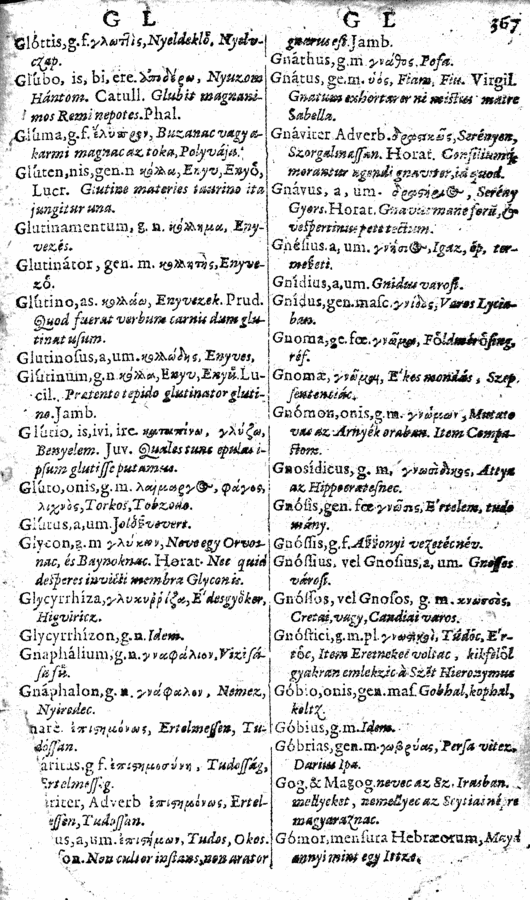 G L
G L
367
Glóttis, g.f. γλωττὶς, Nyeldeklő, Nyelv-
czap.
Glubo, is, bi, ere. Nyuzom
Hántom. Catull. Glubit magnani-
mos Remi nepotes. Phal.
Gluma, g.f. Buzanac vagy a-
karmi magnac az toka, Polyvája.
Glúten, nis, gen. n κόλλα, Enyv, Enyő,
Lucr. Glutine materies taurino ita
jungitur una.
Glutinamentum, g. n. κόλλημα, Eny-
vezés.
Glutinátor, gen. m. κολλητὴς, Enyve-
ző.
Glútino, as. κολλάω, Enyvezek. Prud.
Quod fuerat verbum carnis dum glu-
tinat usum.
Glutinosus, a, um. κολλώδης, Enyves,
Glútinum, g.n κόλλα, Enyv, Enyü. Lu-
cil. Pretento tepido glutinator gluti-
no. Jamb.
Glutio, is, ivi, ire. καταπίνω, γλύζω,
Benyelem. Juv. Quales tunc epulas i-
psum glutisse putamus.
Gluto, onis, g.m. φάγος,
λιχνὸς, Torkos, Tobzono.
Glutus, a, um.
Glycon, g.m γλύκων, Neve egy Orvos-
nac, és Baynoknac. Horat. Nec quid
desperes invicti membra Glyconis.
Glycyrrhiza, γλυκυῤῥίζα, E'desgyöker,
Higviricz.
Glycyrrhízon, g.n. Idem.
Gnaphálium, g.n. γναφάλιον, Vizi sá-
sá fü.
Gnáphalon, g. n. γνάφαλον, Nemez,
Nyiredec.
nare. ἐπιστημόνως, Ertelmessen, Tu-
dossan.
aritas. g f. ἐπιστημοσύνη, Tudosság,
Ertelmesség.
ariter, Adverb ἐπιστημόνως, Ertel-
essen, Tudossan.
us, a, um. ἐπιστήμων, Tudos, Okos.
son. Non cultor instans, non arator
gnarus est. Jamb.
Gnathus, g.m. γνάθος, Pofa.
Gnátus, ge. m. υἱὸς, Fiam, Fiu. Virgil.
Gnatum exhortarer ni mistus matre
Sabella.
Gnáviter Adverb. Serényen,
Szorgalmassan. Horat. Consiliumq́
morantur agendi gnaviter, id quod.
Gnávus, a, um. Serény
Gyors. Horat. Gnavus mane forū, &
vespertinus pete tectum.
Gnésius. a, um. Igaz, ép, ter-
mészeti.
Gnídius, a, um. Gnidus varosi.
Gnídus, gen. masc. γνίδος, Varos Lycia-
ban.
Gnoma, ge. fœ. γνῶμα,
rés.
Gnomæ, γνῶμαι, E'kes mondás, Szep
sententiác.
Gnómon, onis, g.m. γνώμων, Mutato
vas az Arnyék oraban. Item Compa-
stom.
Gnosídicus, g. m, γνωσίδικος, Attya
az Hippocratesnec.
Gnósis, gen. fœ γνῶσις, E'rtelem, tudo
mány.
Gnóssis, g.f. Aßßonyi vezetécnév.
Gnóssius, vel Gnosius, a, um. Gnosses
városi.
Gnóssos, vel Gnosos, g. m. κνωσσὸς,
Cretai, vagy, Candiai varos.
Gnóstici, g.m.pl. γνωστικοὶ, Tudóc, E'r-
tőc, Item Eretnekec voltac, kikfelől
gyakran emlekzic à Szēt Hieronymus
Góbio, onis, gen. mas. Gobhal, kophal,
koltz.
Góbius, g.m. Idem.
Góbrias, gen. m. γωβρύας, Persa vitez.
Darius Ipa.
Gog, & Magog. nevec az Sz. Irasban.
mellyeket, nemellyec az Scytiai népre
magyaráznac.
Gómor, mensura Hebræorum, Mayd
annyi mint egy Ittze.